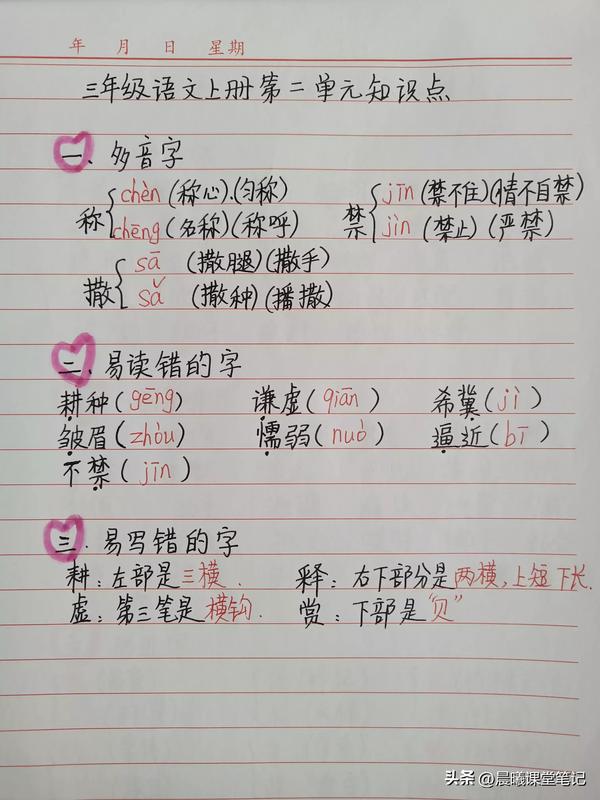 年 月 日 星期
三年级语文上册第二单元知识点
一、多音字
称{chèn(称心).(匀称) 禁{jīn(禁不住)(情不自禁)
chēng(名称)(称呼) jìn(禁止)(严禁)
撒{sā (撒腿)(撒手)
sǎ (撒种)(播撒)
二、易读错的字
耕种(gēng) 谦虚(qiān) 希冀(jì)
皱眉(zhòu) 懦弱(nuò) 逼近(bī)
不禁(jīn)
三.易写错的字
耕:左部是三横. 释:右下部分是两横,上短下长.
虚:第三笔是横钩. 赏:下部是"贝"
头条 @晨曦课堂笔记